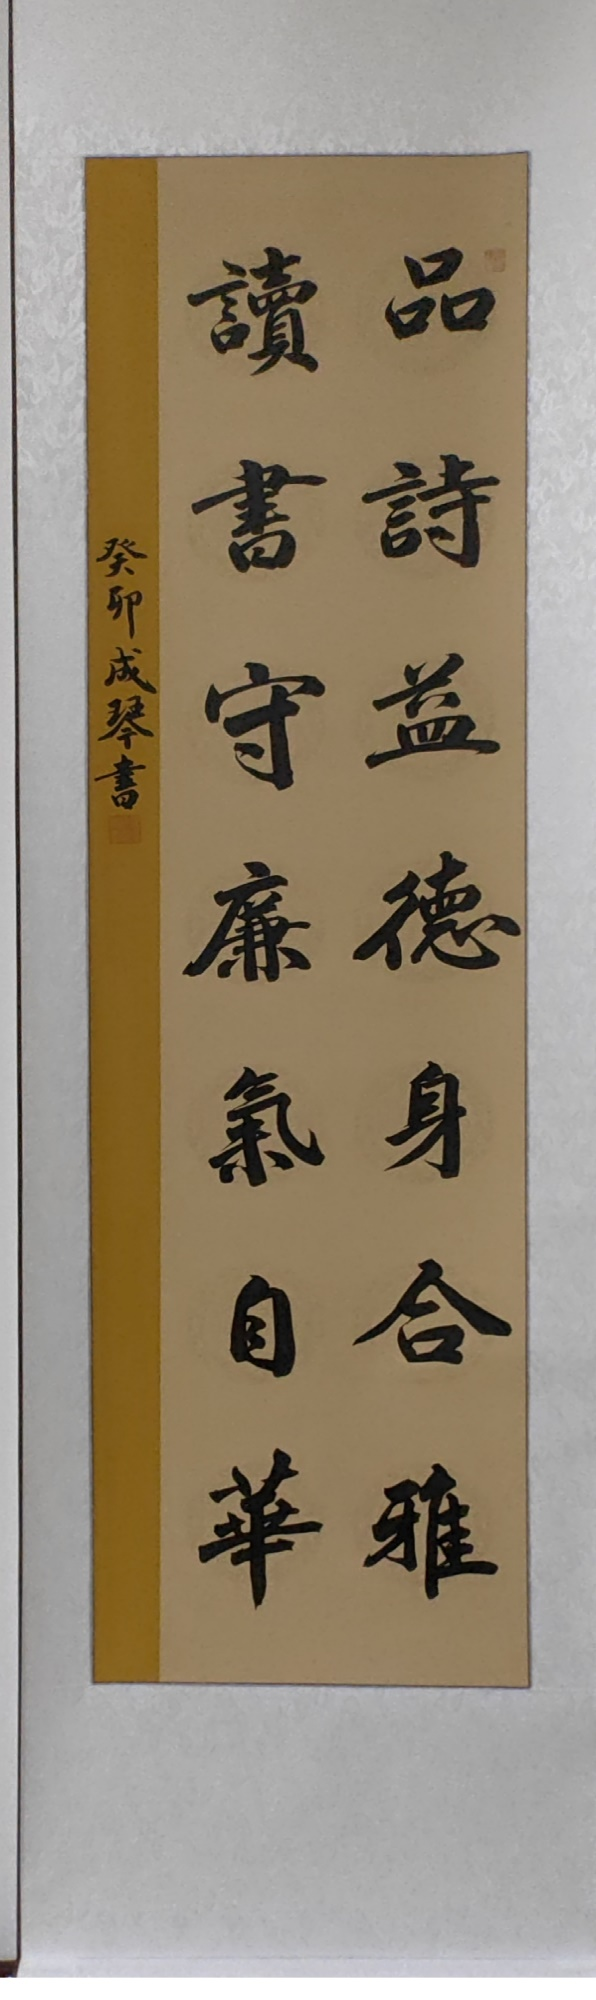 品詩益德身合雅
讀書守廉氣自華
癸卯成琴書